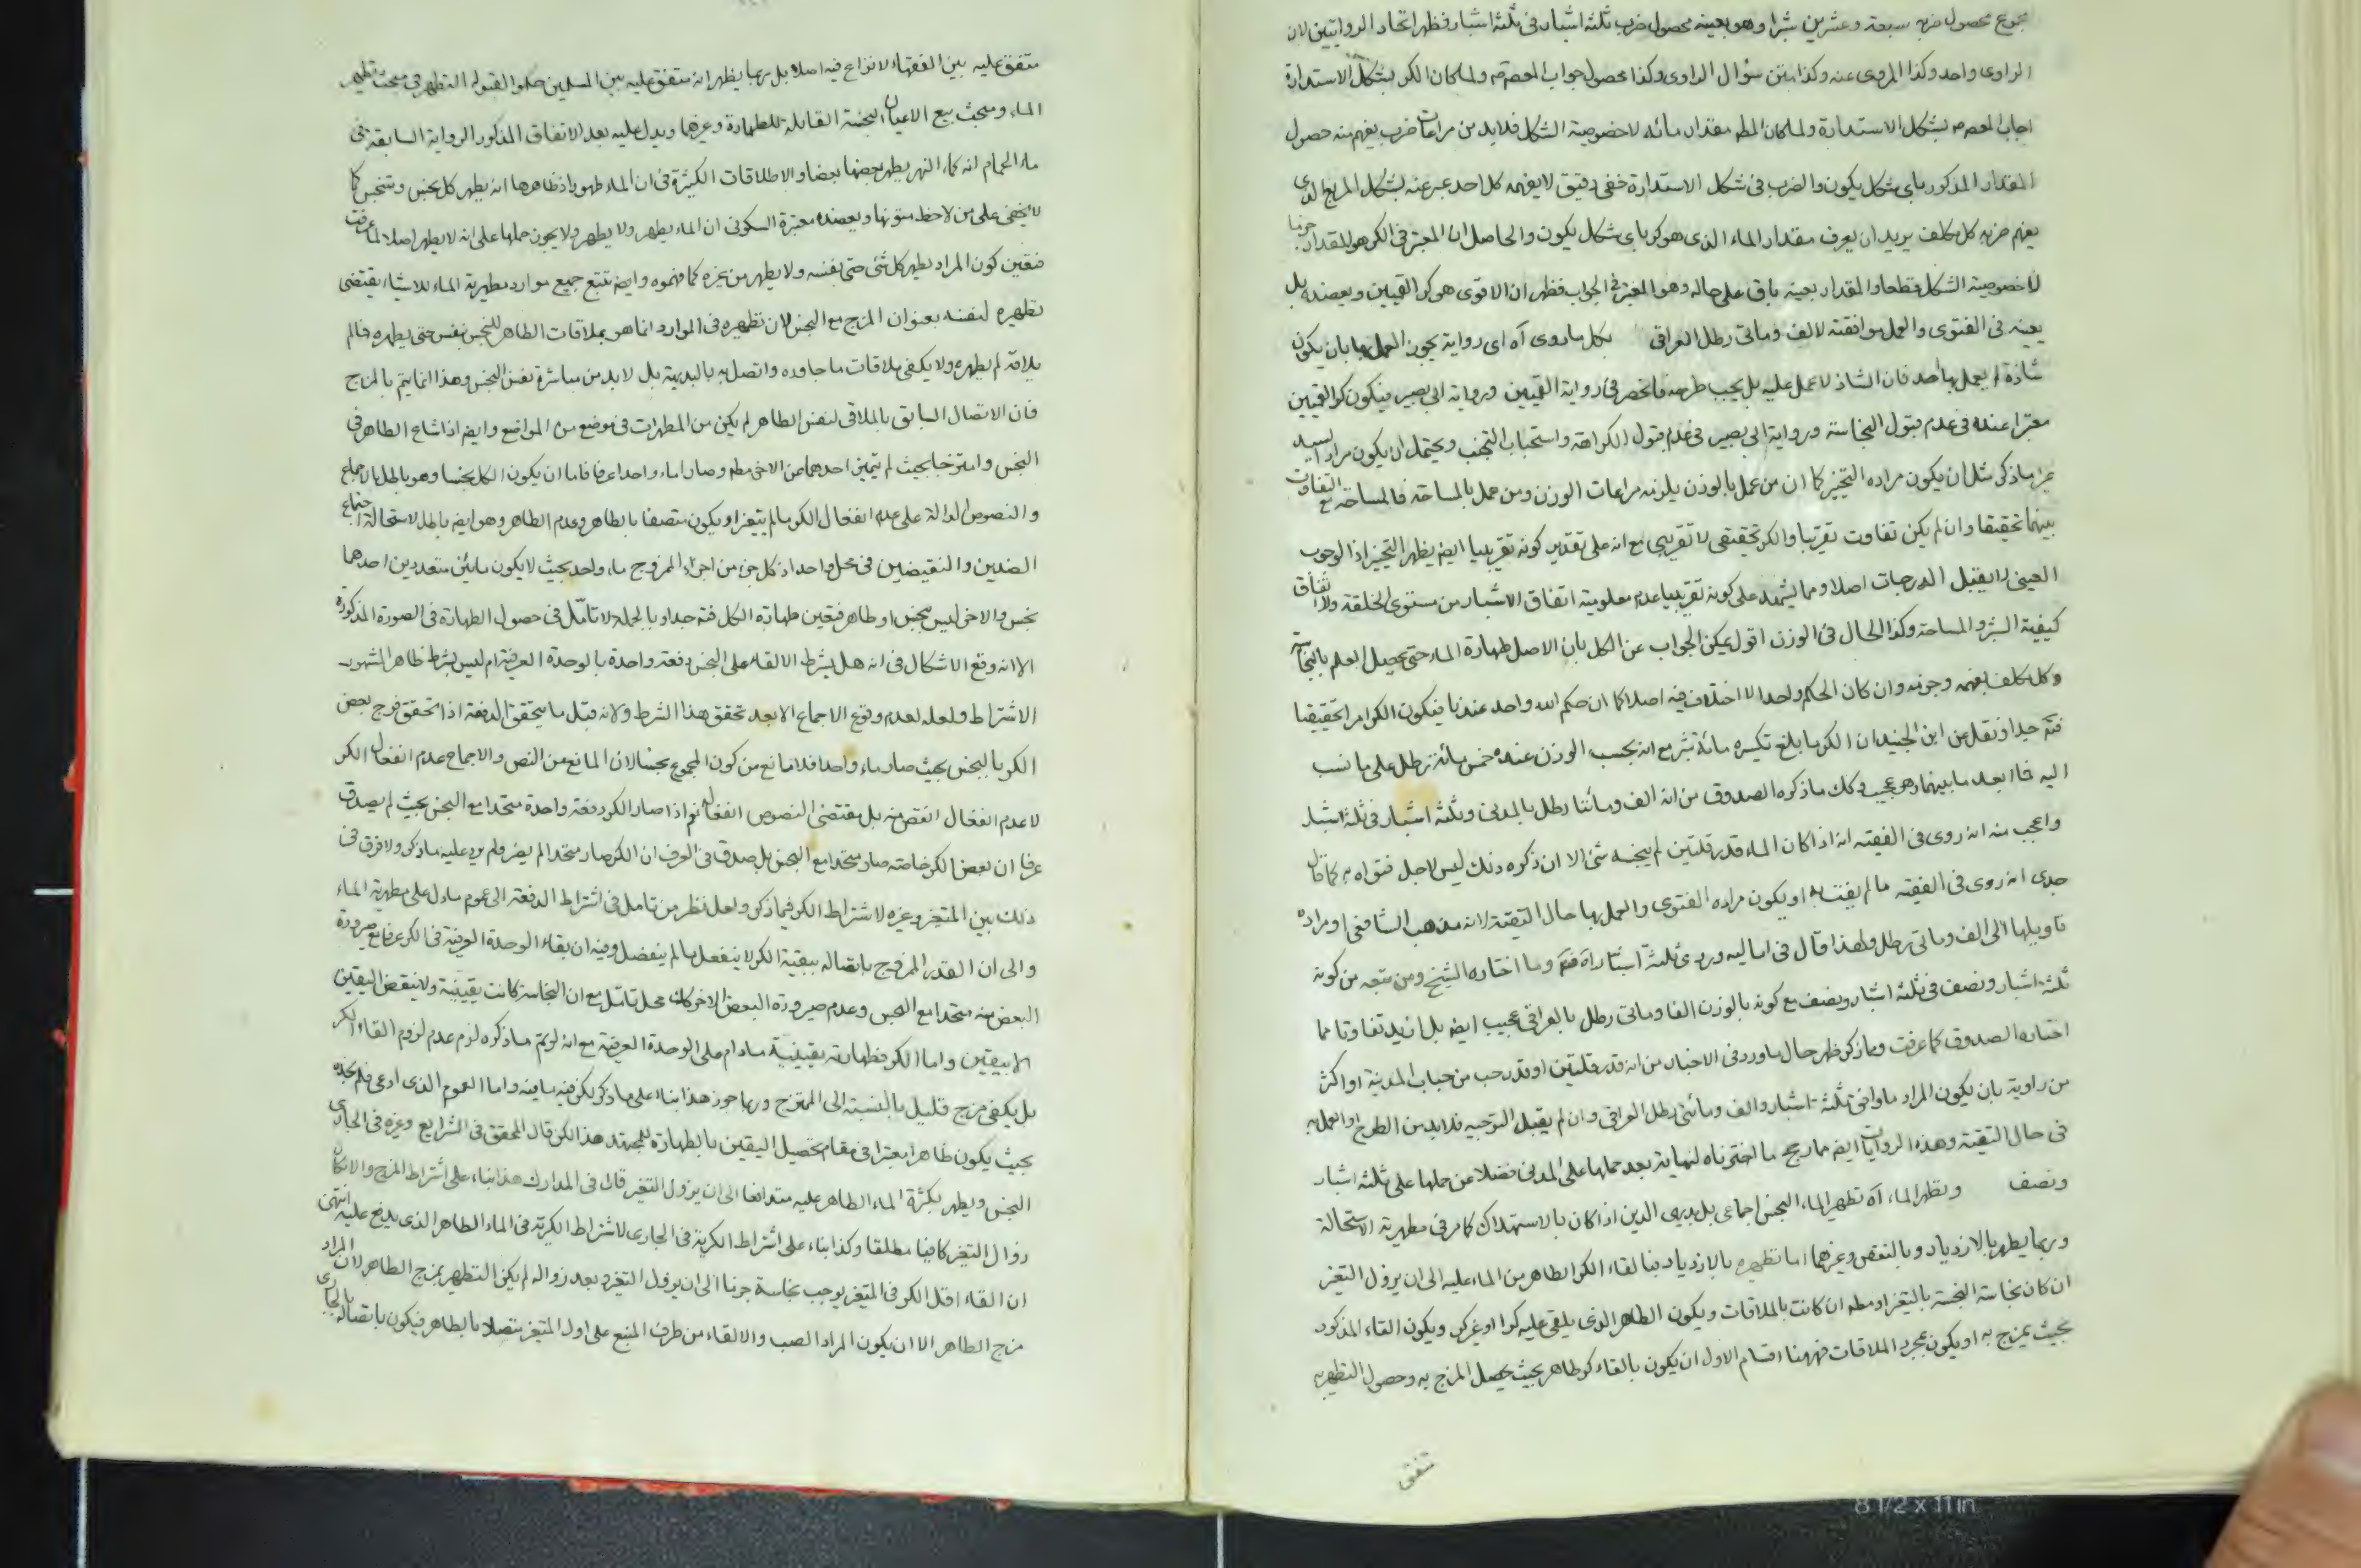 مجموع محصول ضربه سبعة وعشرين شبرا وهو بعينه محصول ضرب ثلثة اشبار في ثلثة اشبار فظهر اتحاد الروايتين لان
الراوى واحد وكذا المروى عنه وكذا متن سؤال الراوى وكذا محصول جواب المعصوم ولما كان الكر بشكل الاستدارة
اجاب المعصوم بشكل الاستدارة ولما كان المطم مقدار مائه لا خصوصية الشكل فلابد من مراعات ضرب يفهم منه حصول
المقدار المذكور باى شكل يكون والضرب فى شكل الاستدارة خفى دقيق لا يفهمه كل احد عبر عنه بشكل المربع الذى
يفهم ضربه كل مكلف يريد ان يعرف مقدار الماء الذى هو كر باى شكل يكون والحاصل ان المعتبر فى الكر هو المقدار جزما
لا خصوصية الشكل قطعا والمقدار بعينه باق على حاله وهو المعتبر فى الجواب فظهر ان الاقوى هو كر القميين ويعضده بل
يعينه فى الفتوى والعمل موافقته لالف ومأتى رطل العراقى بكل ما روى آه اى رواية يجوز العمل بها بان يكون
شاذة لم يعمل بها احد فان الشاذ لا عمل عليه بل يجب طرحه فانحصر فى رواية القميين ورواية ابى بصير فيكون كر القميين
معتبرا عنده فى عدم قبول النجاسة ورواية ابى بصير فى عدم قبول الكراهة واستحباب التجنب ويحتمل ان يكون مراد السيد
غير ما ذكر مثل ان يكون مراده التخيير كما ان من عمل بالوزن يلزمه مراعات الوزن ومن عمل بالمساحة فالمساحة مع التفاوت
بينهما تحقيقا وان لم يكن تفاوت تقريبا والكر تحقيقى لا تقريبى مع انه على تقدير كونه تقريبيا ايض يظهر التخيير اذ الوجوب
العينى لا يقبل الدرجات اصلا ومما يشهد على كونه تقريبيا عدم معلومية اتفاق الاشبار من مستوى الخلقة ولا اتفاق
كيفية الشبر والمساحة وكذا الحال فى الوزن اقول يمكن الجواب عن الكل بان الاصل طهارة الماء حتى يحصل العلم بالنجاسة
وكل مكلف يفهمه وجزمه وان كان الحكم واحدا لا اختلاف فيه اصلا كما ان حكم الله واحد عندنا فيكون الكر امرا تحقيقيا
فتم جدا ونقل عن ابن الجنيد ان الكر ما بلغ تكسيره مائة شبر مع انه بحسب الوزن عنده خمس مائة رطل على ما نسب
اليه فما ابعد ما بينهما وهو عجيب وكك ما ذكره الصدوق من انه الف ومائتا رطل بالمدنى وثلثة اشبار فى ثلثة اشبار
واعجب منه انه روى فى الفقيه انه اذا كان الماء قدر قلتين لم ينجسه شئ الا ان ذكره ذلك ليس لاجل فتواه به كما قال
جدى انه روى فى الفقيه ما لم يفت به او يكون مراده الفتوى والعمل بها حال التقية لانه مذهب الشافعى او مراده
تاويلها الى الف ومأتى رطل ولهذا قال فى اماليه وروى ثلثة اشبار آه فتم وما اختاره الشيخ ومن تبعه من كونه
ثلثة اشبار ونصف فى ثلثة اشبار ونصف مع كونه بالوزن الفا ومأتى رطل بالعراقى عجيب ايض بل ازيد تفاوتا مما
اختاره الصدوق كما عرفت ومما ذكر ظهر حال ما ورد فى الاخبار من انه قدر قلتين او قدر حب من حباب المدينة او اكثر
من راوية بان يكون المراد ما وافق ثلثة اشبار والف ومائتى رطل العراقى وان لم يقبل التوجيه فلابد من الطرح او العمل به
فى حال التقية وهذه الروايات ايض مما يرجح ما اخترناه لنهاية بعد حملها على المدنى فضلا عن حملها على ثلثة اشبار
ونصف ويطهر الماء آه تطهير الماء النجس اجماعى بل بديهى الدين اذا كان بالاستهلاك كما مر فى مطهرية الاستحالة
وربما يطهر بالازدياد وبالنقص وغيرهما اما تطهيره بالازدياد فبالقاء الكر الطاهر من الماء عليه الى ان يزول التغير
ان كان نجاسة النجسة بالتغير او مطم ان كانت بالملاقات ويكون الطاهر الذى يلقى عليه كرا او غير كر ويكون القاء المذكور
بحيث يمزج به او يكون بمجرد الملاقات فههنا اقسام الاول ان يكون بالقاء كر طاهر بحيث يحصل المزج به وحصول التطهير به
متفق
متفق عليه بين الفقهاء لا نزاع فيه اصلا بل ربما يظهر انه متفق عليه بين المسلمين القبوله التطهر فى مبحث تطهير
الماء ومبحث بيع الاعيان النجسة القابلة للطهارة وغيرهما ويدل عليه بعد الاتفاق المذكور الرواية السابقة فى
ماء الحمام انه كماء النهر يطهر بعضها بعضا والاطلاقات الكثيرة فى ان الماء طهور اذ ظاهرها انه يطهر كل نجس ومتنجس كما
لا يخفى على من لاحظ متونها ويعضده معتبرة السكونى ان الماء يطهر ولا يطهر ولا يجوز حملها على انه لا يطهر اصلا لما عرفت
فتعين كون المراد يطهر كل شئ حتى نفسه ولا يطهر من غيره كما فهموه وايض تتبع جميع موارد مطهرية الماء للاشياء يقتضى
تطهيره لنفسه بعنوان المزج مع النجس لان تطهيره فى الموارد انما هو بملاقات الطاهر للنجس بنفس حتى يطهره فما لم
يلاقه لم يطهره ولا يكفى ملاقات ما جاوره واتصل به بالبديهة بل لابد من مباشرة نفس النجس وهذا انما يتم بالمزج
فان الاتصال السابق بالملاقى لنفس الطاهر لم يكن من المطهرات فى موضع من المواضع وايض اذا شاع الطاهر فى
النجس وامتزجا بحيث لم يتميز احدهما عن الاخر مطم وصارا ماء واحدا عرفا فاما ان يكون الكل نجسا وهو باطل بالاجماع
والنصوص الدالة على عدم انفعال الكر ما لم يتغير او يكون متصفا بالطاهر وعدم الطاهر وهو ايض باطل لاستحالة اجتماع
الضدين والنقيضين فى محل واحد اذ كل جزء من اجزاء الممزوج ماء واحد بحيث لا يكون مائين متعددين احدهما
نجس والاخر ليس بنجس او طاهر فتعين طهارة الكل فتم جدا وبالجملة لا تامل فى حصول الطهارة فى الصورة المذكورة
الا انه وقع الاشكال فى انه هل يشرط الالقاء على النجس دفعة واحدة بالوحدة العرفية ام ليس بشرط ظاهر المشهور
الاشتراط ولعله لعدم وقوع الاجماع الا بعد تحقق هذا الشرط ولانه قبل ما يتحقق الدفعة اذا تحقق مزج بعض
الكر بالنجس بحيث صار ماء واحدا فلا مانع من كون المجموع نجسا لان المانع من النص والاجماع عدم انفعال الكر
لا عدم انفعال انقص منه بل مقتضى النصوص انفعاله نعم اذا صار الكر دفعة واحدة متحدا مع النجس بحيث لم يصدق
عرفا ان بعض الكر خاصة صار متحدا مع النجس بل صدق فى العرف ان الكر صار متحدا لم يضر ولم يرد عليه ما ذكر ولا فرق فى
ذلك بين المتغير وغيره لاشتراط الكر فيما ذكر ولعل نظر من تامل فى اشتراط الدفعة الى عموم ما دل على مطهرية الماء
والى ان القدر الممزوج باتصاله ببقية الكر لا ينفعل ما لم ينفصل وفيه ان بقاء الوحدة العرفية فى الكر عرفا مع صيرورة
البعض منه متحدا مع النجس وعدم صيرورة البعض الاخر كك محل تامل مع ان النجاسة كانت يقينية ولا ينقض اليقين
الا بيقين واما الكر فطهارته يقينية ما دام على الوحدة العرفية مع انه لو تم ما ذكره لزم عدم لزوم القاء الكر
بل يكفى مزج قليل بالنسبة الى الممتزج وربما جوز هذا بناء على ما ذكر لكن فيه ما فيه واما العموم الذى ادعى فلم نجده
بحيث يكون ظاهرا معتبرا فى مقام تحصيل اليقين بالطهارة للمجتهد هذا لكن قال المحقق فى الشرايع وغيره فى الجارى
النجس ويطهر بكثرة الماء الطاهر عليه متدافعا الى ان يزول التغير قال فى المدارك هذا بناء على اشتراط المزج والا لكان
زوال التغير كافيا مطلقا وكذا بناء على اشتراط الكرية فى الجارى لاشتراط الكرية فى الماء الطاهر الذى يدفع عليه انتهى
ان القاء اقل الكر فى المتغير يوجب نجاسة جزما الى ان يزول التغير وبعد زواله لم يكن التطهير بمزج الطاهر لان المراد
مزج الطاهر الا ان يكون المراد الصب والالقاء من طرف المنبع على اول المتغير متصلا بالطاهر فيكون باتصاله بالجارى
8 1/2 x 11 in